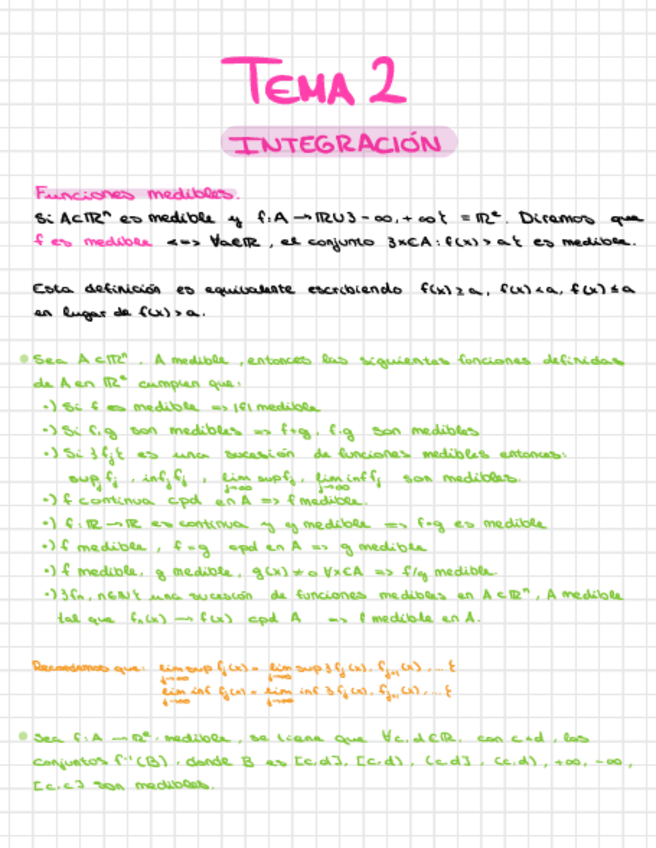 TEMA 2
INTEGRACIÓN
Funciones medibles.
Si A⊂ℝⁿ es medible y f:A→ℝ∪{-∞,+∞} = ℝ*. Diremos que
f es medible <=> ∀a∈ℝ, el conjunto {x∈A: f(x)>a} es medible.
Esta definición es equivalente escribiendo f(x)≥a, f(x)<a, f(x)≤a
en lugar de f(x)>a.
• Sea A⊂ℝⁿ, A medible, entonces las siguientes funciones definidas
de A en ℝ* cumplen que:
·) Si f es medible => |f| medible
·) Si f,g son medibles => f+g, f·g son medibles
·) Si {fj} es una sucesión de funciones medibles entonces:
supj fj, infj fj, lim sup fj, lim inf fj son medibles.
j→∞ j→∞
·) f continua cpd en A => f medible.
·) f:ℝ→ℝ es continua y g medible => f∘g es medible
·) f medible, f=g cpd en A => g medible
·) f medible, g medible, g(x)≠0 ∀x∈A => f/g medible.
·) {fn, n∈ℕ} una sucesión de funciones medibles en A⊂ℝⁿ, A medible
tal que fn(x)→f(x) cpd A => f medible en A.
Recordamos que: lim sup fj(x) = lim sup {fj(x), fj+1(x), ...}
j→∞ j→∞
lim inf fj(x) = lim inf {fj(x), fj+1(x), ...}
j→∞ j→∞
• Sea f:A→ℝ* medible, se tiene que ∀c,d∈ℝ, con c<d, los
conjuntos f⁻¹(B), donde B es [c,d], [c,d), (c,d], (c,d), +∞, -∞,
[c,c] son medibles.